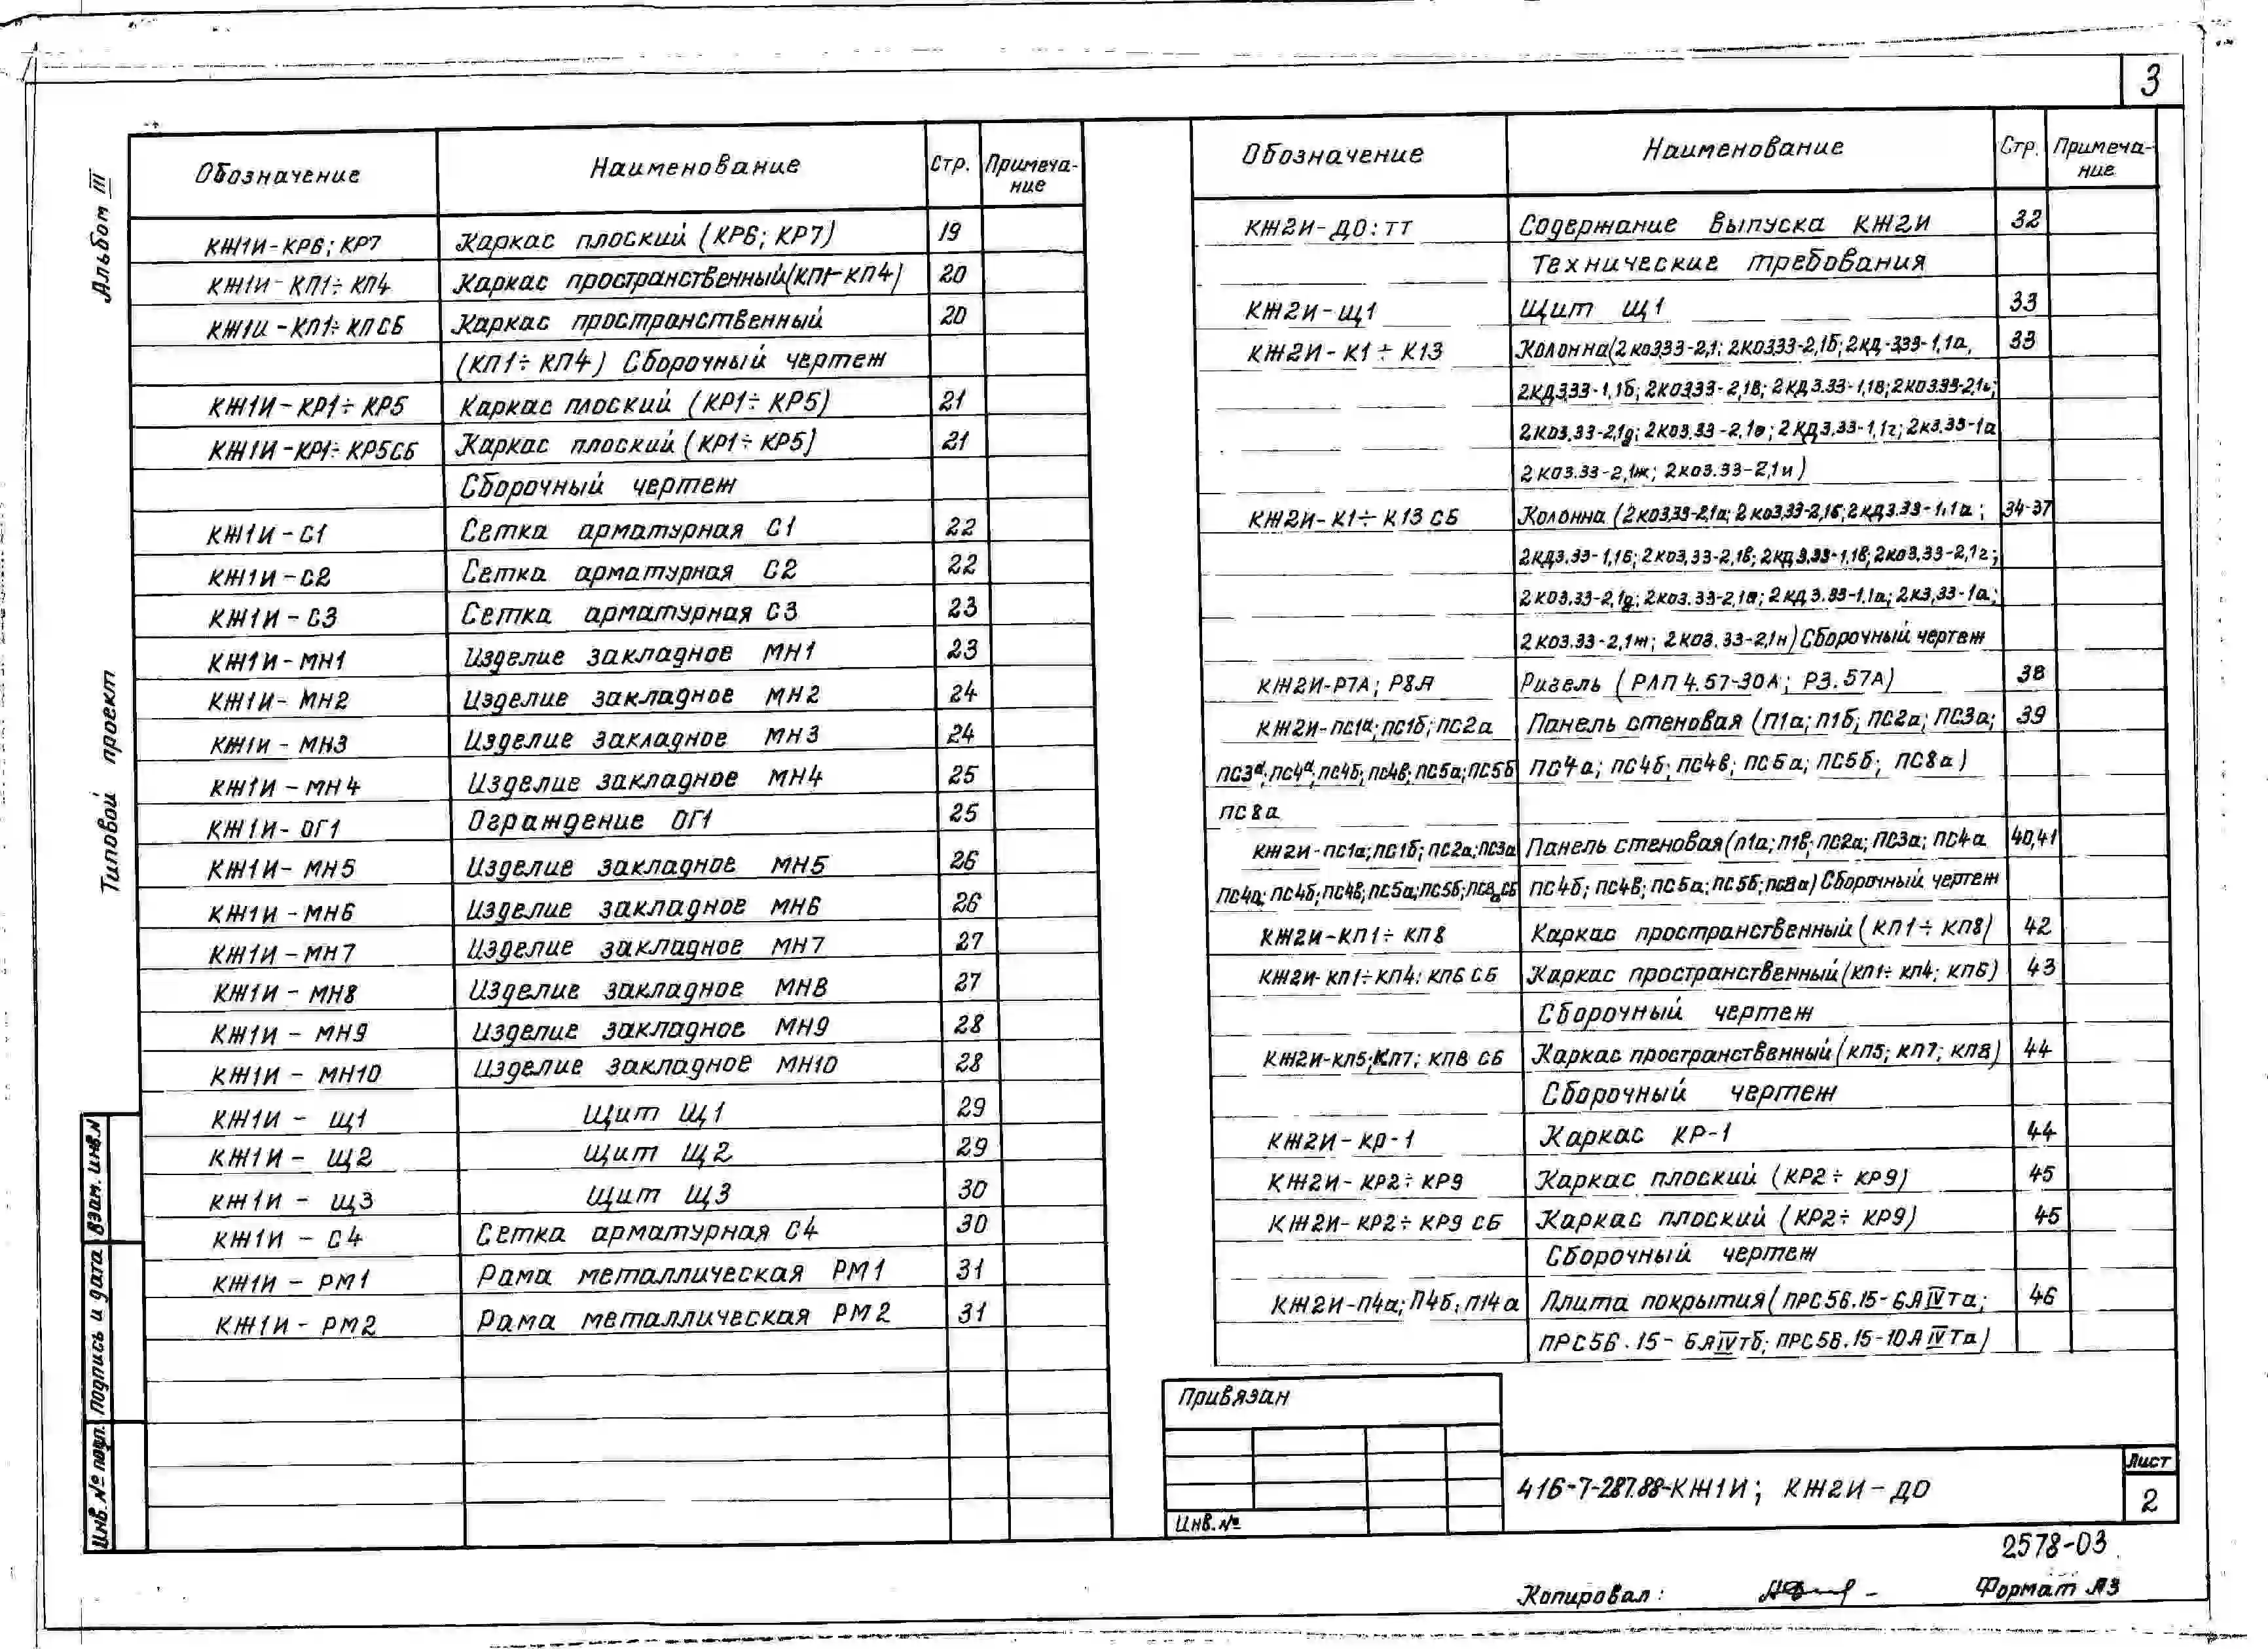 3
Альбом III
Типовой проект
Обозначение Наименование Стр. Примеча-
ние
КЖ1И-КР6; КР7 Каркас плоский (КР6; КР7) 19
КЖ1И-КП1÷КП4 Каркас пространственный(КП1-КП4) 20
КЖ1И-КП1÷КПСБ Каркас пространственный 20
(КП1÷КП4) Сборочный чертеж
КЖ1И-КР1÷КР5 Каркас плоский (КР1÷КР5) 21
КЖ1И-КР1÷КР5СБ Каркас плоский (КР1÷КР5) 21
Сборочный чертеж
КЖ1И-С1 Сетка арматурная С1 22
КЖ1И-С2 Сетка арматурная С2 22
КЖ1И-С3 Сетка арматурная С3 23
КЖ1И-МН1 Изделие закладное МН1 23
КЖ1И-МН2 Изделие закладное МН2 24
КЖ1И-МН3 Изделие закладное МН3 24
КЖ1И-МН4 Изделие закладное МН4 25
КЖ1И-ОГ1 Ограждение ОГ1 25
КЖ1И-МН5 Изделие закладное МН5 26
КЖ1И-МН6 Изделие закладное МН6 26
КЖ1И-МН7 Изделие закладное МН7 27
КЖ1И-МН8 Изделие закладное МН8 27
КЖ1И-МН9 Изделие закладное МН9 28
КЖ1И-МН10 Изделие закладное МН10 28
КЖ1И-Щ1 Щит Щ1 29
КЖ1И-Щ2 Щит Щ2 29
КЖ1И-Щ3 Щит Щ3 30
КЖ1И-С4 Сетка арматурная С4 30
КЖ1И-РМ1 Рама металлическая РМ1 31
КЖ1И-РМ2 Рама металлическая РМ2 31
Обозначение Наименование Стр. Примеча-
ние
КЖ2И-ДО:ТТ Содержание выпуска КЖ2И 32
Технические требования
КЖ2И-Щ1 Щит Щ1 33
КЖ2И-К1÷К13 Колонна(2КО3.33-2,1; 2КО3.33-2,1б; 2КД-3.33-1,1а, 33
2КД3.33-1,1б; 2КО3.33-2,1в; 2КД3.33-1,1в; 2КО3.33-2,1г;
2КО3.33-2,1д; 2КО3.33-2,1е; 2КД3.33-1,1г; 2К3.33-1а
2КО3.33-2,1ж; 2КО3.33-2,1и)
КЖ2И-К1÷К13 СБ Колонна (2КО3.33-2,1а; 2КО3.33-2,1б; 2КД3.33-1,1а; 34-37
2КД3.33-1,1б; 2КО3.33-2,1в; 2КД3.33-1,1в; 2КО3.33-2,1г;
2КО3.33-2,1д; 2КО3.33-2,1е; 2КД3.33-1,1а; 2К3.33-1а;
2КО3.33-2,1ж; 2КО3.33-2,1н) Сборочный чертеж
КЖ2И-Р7А; Р8А Ригель (РЛП4.57-30А; Р3.57А) 38
КЖ2И-ПС1а; ПС1б; ПС2а Панель стеновая (П1а; П1б; ПС2а; ПС3а; 39
ПС3а; ПС4а; ПС4б; ПС4в; ПС5а; ПС5б ПС4а; ПС4б; ПС4в; ПС5а; ПС5б; ПС8а)
ПС8а
КЖ2И-ПС1а; ПС1б; ПС2а; ПС3а Панель стеновая(П1а; П1в; ПС2а; ПС3а; ПС4а 40,41
ПС4а; ПС4б; ПС4в; ПС5а; ПС5б; ПС8а СБ ПС4б; ПС4в; ПС5а; ПС5б; ПС8а) Сборочный чертеж
КЖ2И-КП1÷КП8 Каркас пространственный (КП1÷КП8) 42
КЖ2И-КП1÷КП4; КП6 СБ Каркас пространственный (КП1÷КП4; КП6) 43
Сборочный чертеж
КЖ2И-КП5; КП7; КП8 СБ Каркас пространственный (КП5; КП7; КП8) 44
Сборочный чертеж
КЖ2И-КР-1 Каркас КР-1 44
КЖ2И-КР2÷КР9 Каркас плоский (КР2÷КР9) 45
КЖ2И-КР2÷КР9 СБ Каркас плоский (КР2÷КР9) 45
Сборочный чертеж
КЖ2И-П4а; П4б; П14а Плита покрытия (ПРС56.15-6АIVТа; 46
ПРС56.15-6АIVТб; ПРС56.15-10АIVТа)
Взам. инв.N
Подпись и дата
Инв.№ подл.
Привязан
Инв.№
416-7-287.88-КЖ1И; КЖ2И-ДО
Лист
2
2578-03
Копировал:
Формат А3